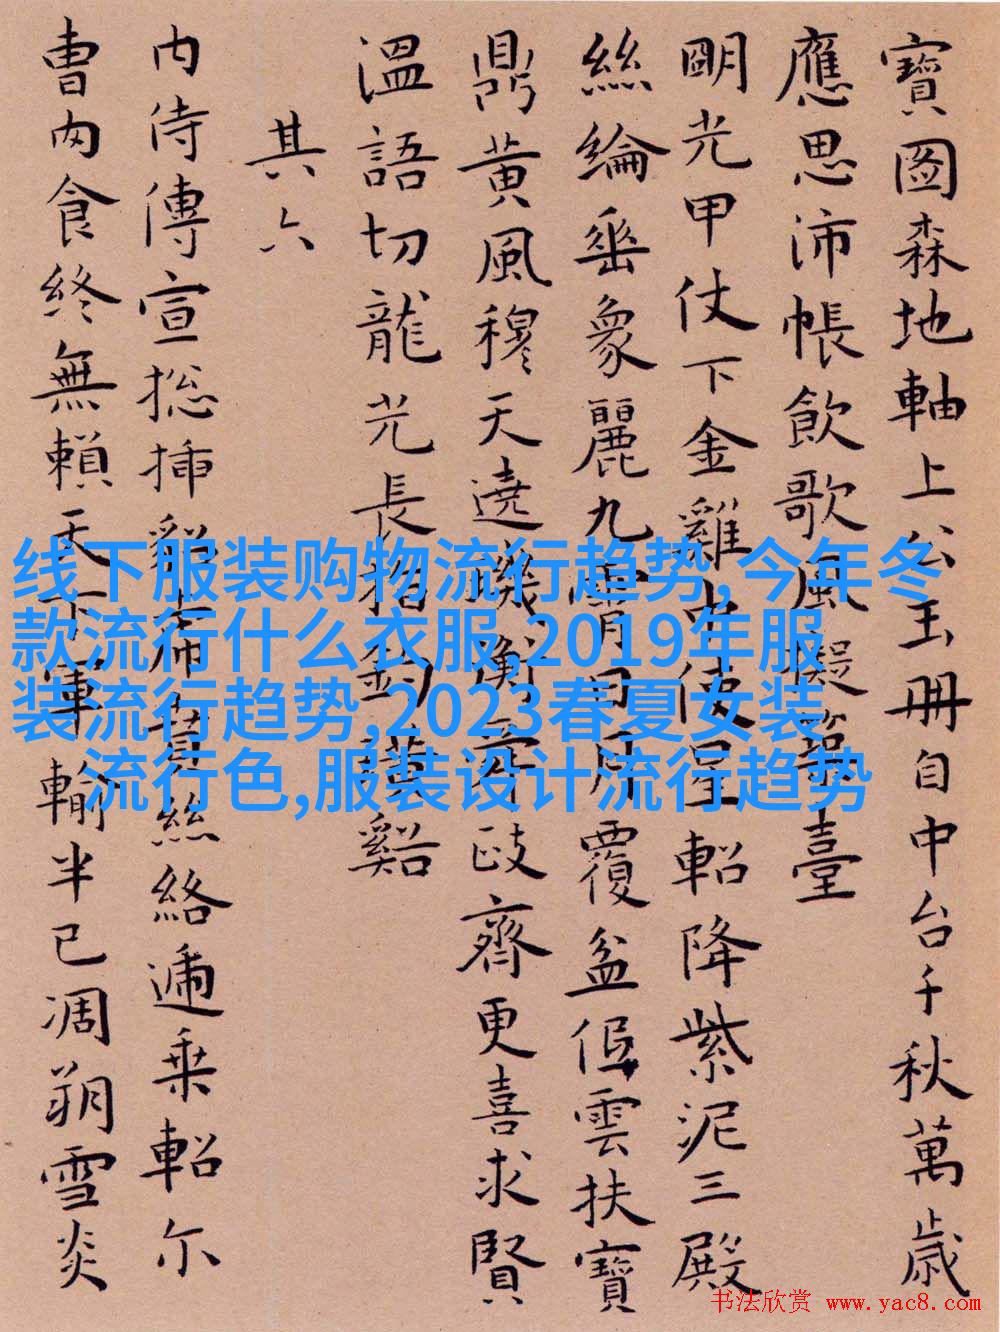 寶圖森地軸上公玉冊自中台千秋萬歲
應思沛帳飲歌風擬築臺
明光甲仗下金雞中使星軺降紫泥三殿
絲綸垂象麗九霄日月覆盆伍雲扶寶
鼎黃風穆天遶璣衡齊政齊更喜求賢
溫語切龍光長指釣璜谿
其六
內侍傳宣總插貂絲絡遍乘軺尔
曹內食終無賴天下軍輸半已凋朔雪炎
线下服装购物流行趋势,今年冬
款流行什么衣服,2019年服
装流行趋势,2023春夏女装
流行色,服装设计流行趋势
书法欣赏 www.yac8.com